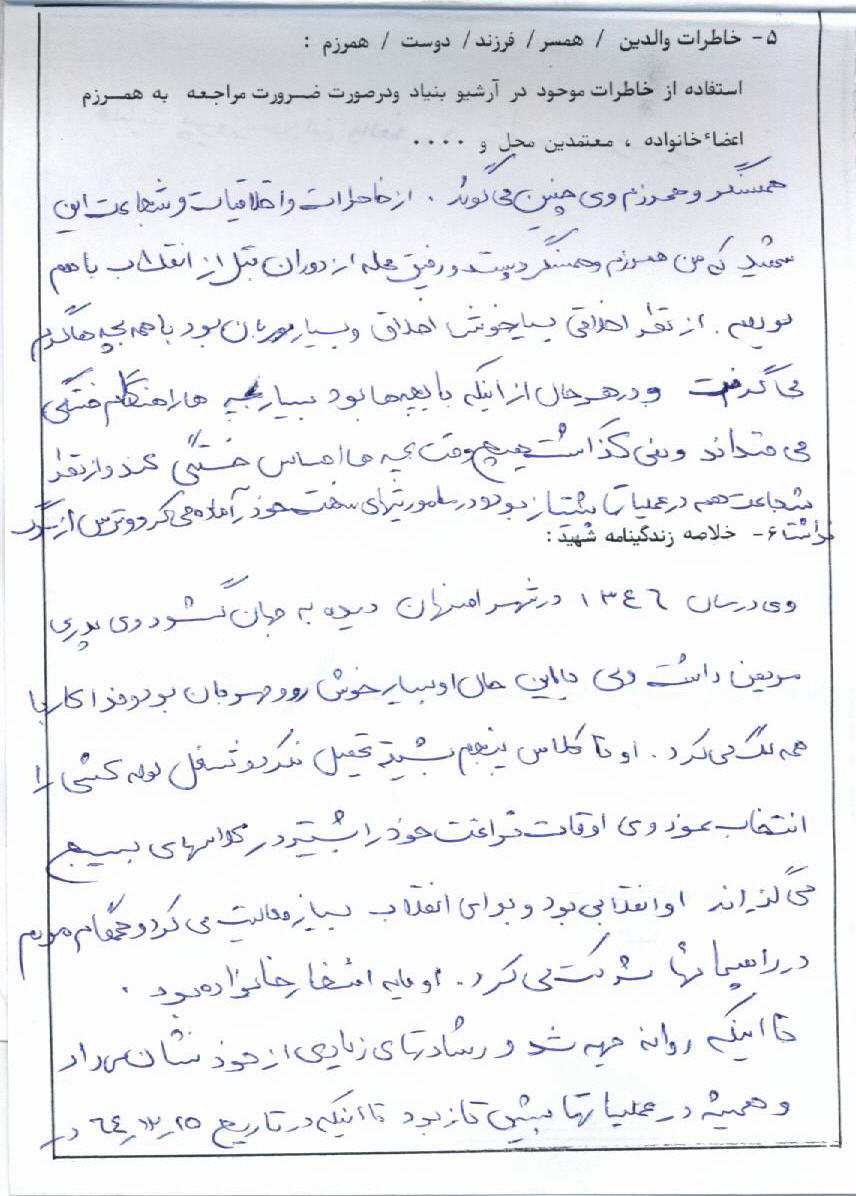 ۵- خاطرات والدین / همسر/ فرزند/ دوست / همرزم :
استفاده از خاطرات موحود در آرشیو بنیاد ودرصورت ضرورت مراجعه به همرزم
اعضاء خانواده ، معتمدین محل و ....
همسنگر و همرزم وی چنین می گوید . از خاطرات و اخلاقیات و شجاعت این
شهید که من همرزم و همسنگر دوست و رفیق محله از دوران قبل از انقلاب با هم
بودیم . از نظر اخلاقی بسیار خوش اخلاق و بسیار مهربان بود با همه بچه ها گرم
می گرفت و در هر حال از اینکه با بچه ها بود بسیار بچه ها را هنگام خستگی
می خنداند و نمی گذاشت هیچ وقت بچه ها احساس خستگی کند و از نظر
شجاعت همه در عملیاتها پیشتاز بود و در ماموریتهای سخت خود را آماده می کرد و ترس از مرگ
نداشت
۶- خلاصه زندگینامه شهید :
وی در سال ۱۳۴۶ در شهر اصفهان دیده به جهان گشود وی پدری
مریض داشت ولی با این حال او بسیار خوش رو و مهربان بود و در کارها
همه کمک می کرد . او تا کلاس پنجم بیشتر تحصیل نکرد و شغل لوله کشی را
انتخاب نمود وی اوقات فراغت خود را بیشتر در کلاسهای بسیج
می گذراند او انقلابی بود و برای انقلاب بسیار فعالیت می کرد و همگام مردم
در راهپیمائیها شرکت می کرد . او مایه افتخار خانواده بود .
تا اینکه روانه جبهه شد و رشادتهای زیادی از خود نشان می داد
و همیشه در عملیاتها پیش تاز بود تا اینکه در تاریخ ۶۴،۱۲،۲۵ در